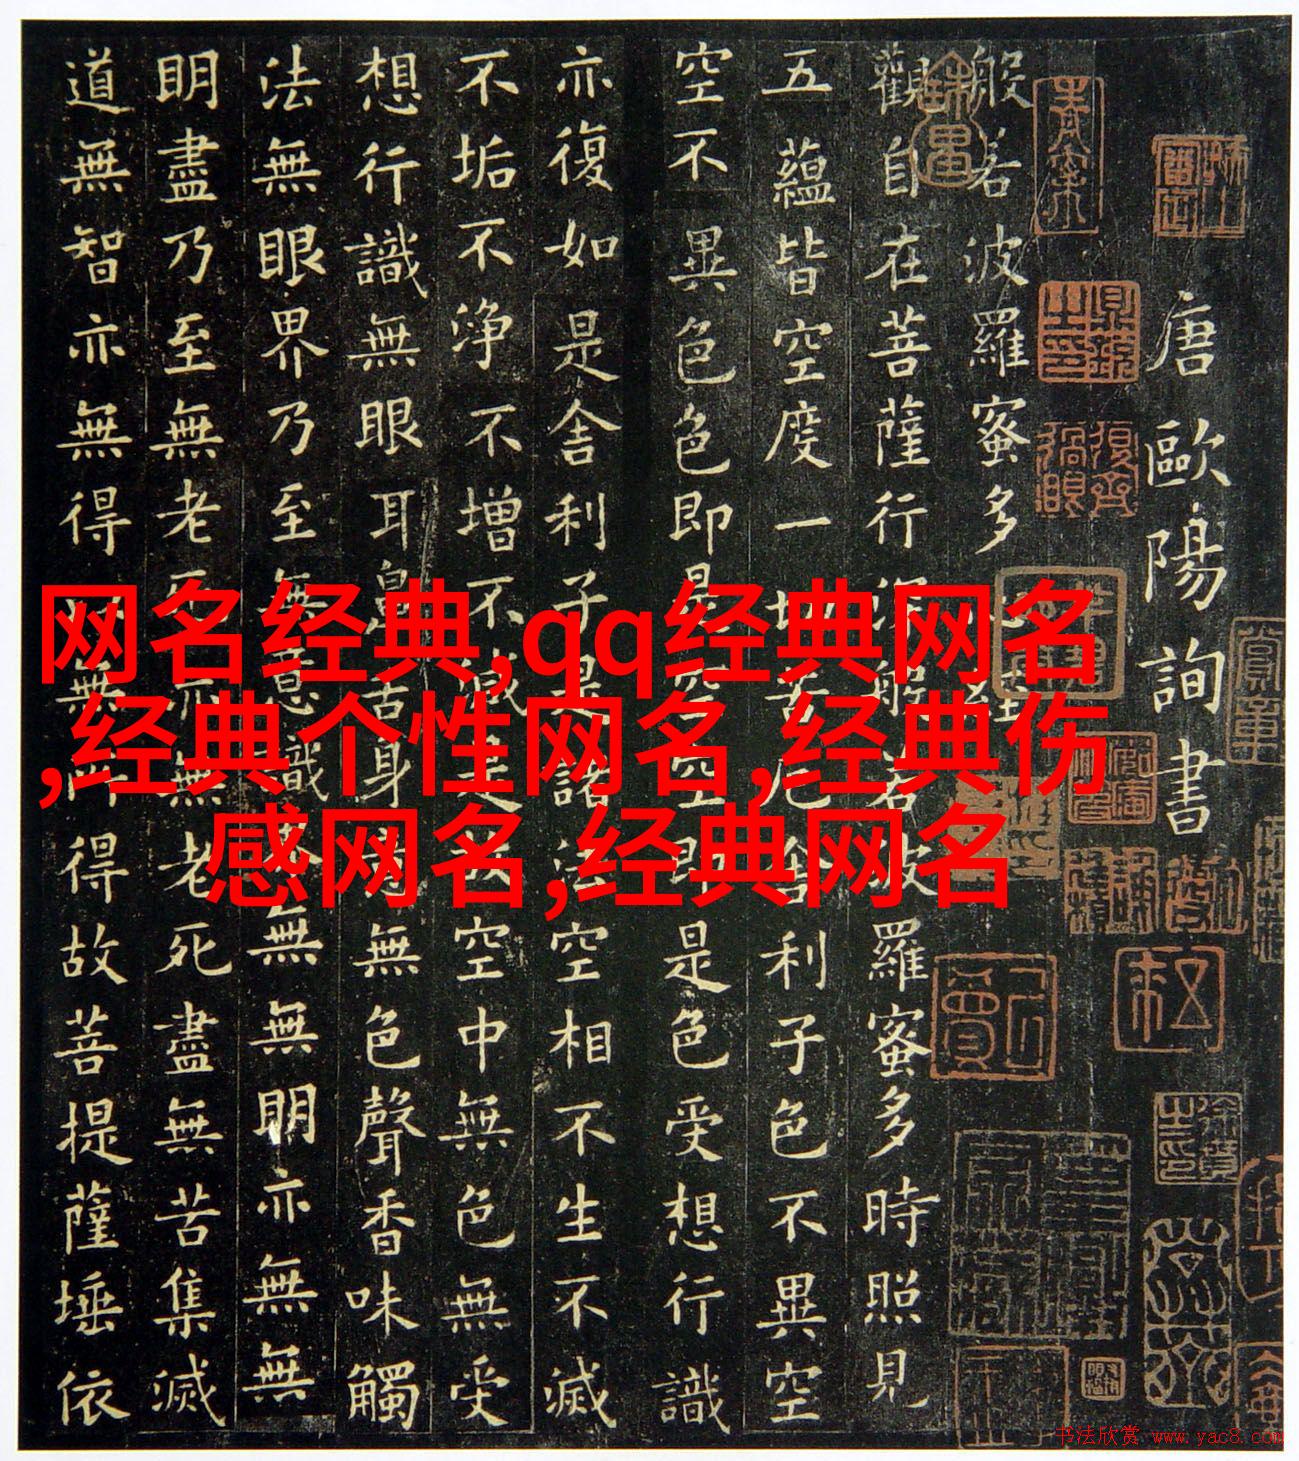 唐歐陽詢書
般若波羅蜜多心經
觀自在菩薩行深般若波羅蜜多時照見
五蘊皆空度一切苦厄舍利子色不異空
空不異色色即是空空即是色受想行識
亦復如是舍利子是諸法空相不生不滅
不垢不淨不增不減是故空中無色無受
想行識無眼耳鼻舌身意無色聲香味觸
法無眼界乃至無意識界無無明亦無無
明盡乃至無老死亦無老死盡無苦集滅
道無智亦無得以無所得故菩提薩埵依
网名经典,qq经典网名
,经典个性网名,经典伤
感网名,经典网名
书法欣赏 www.yac8.com